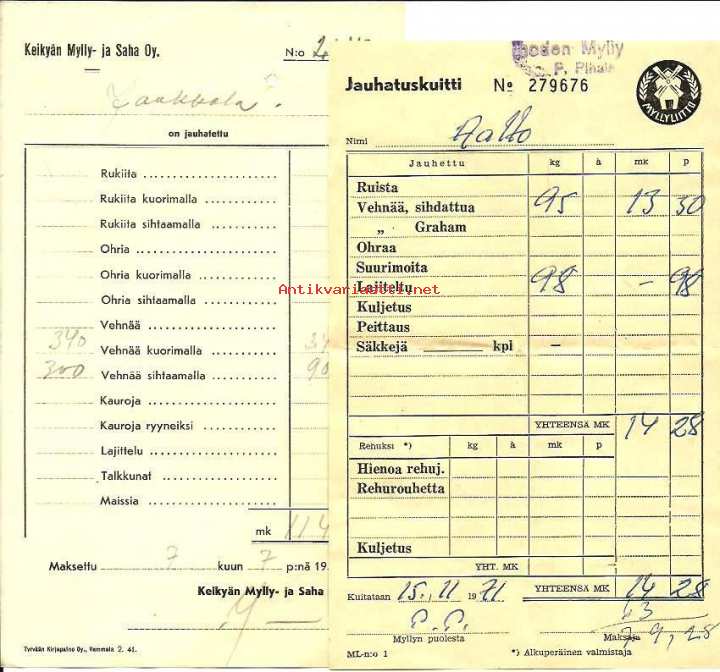 Keikyän Mylly- ja Saha Oy.
N:o
on jauhatettu
Rukiita
Rukiita kuorimalla
Rukiita sihtaamalla
Ohria
Ohria kuorimalla
Ohria sihtaamalla
Vehnää
340 Vehnää kuorimalla
300 Vehnää sihtaamalla 90
Kauroja
Kauroja ryyneiksi
Lajittelu
Talkkunat
Maissia
mk 114
Maksettu 7 kuun 7 p:nä 19
Keikyän Mylly- ja Saha
Tyrvään Kirjapaino Oy., Vammala 2. 41.
Mylly
P.
Jauhatuskuitti № 279676
MYLLYLIITTO
Nimi Aalto
Jauhettu kg à mk p
Ruista
Vehnää, sihdattua 95 13 30
„ Graham
Ohraa
Suurimoita
Lajiteltu 98 – 98
Antikvariaatti.net
Kuljetus
Peittaus
Säkkejä kpl –
YHTEENSÄ MK 14 28
Rehuksi *) kg à mk p
Hienoa rehuj.
Rehurouhetta
Kuljetus
YHT. MK
Kuitataan 15. 11 1971 YHTEENSÄ MK 14 28
P.P.
Myllyn puolesta Maksaja
ML-n:o 1 *) Alkuperäinen valmistaja